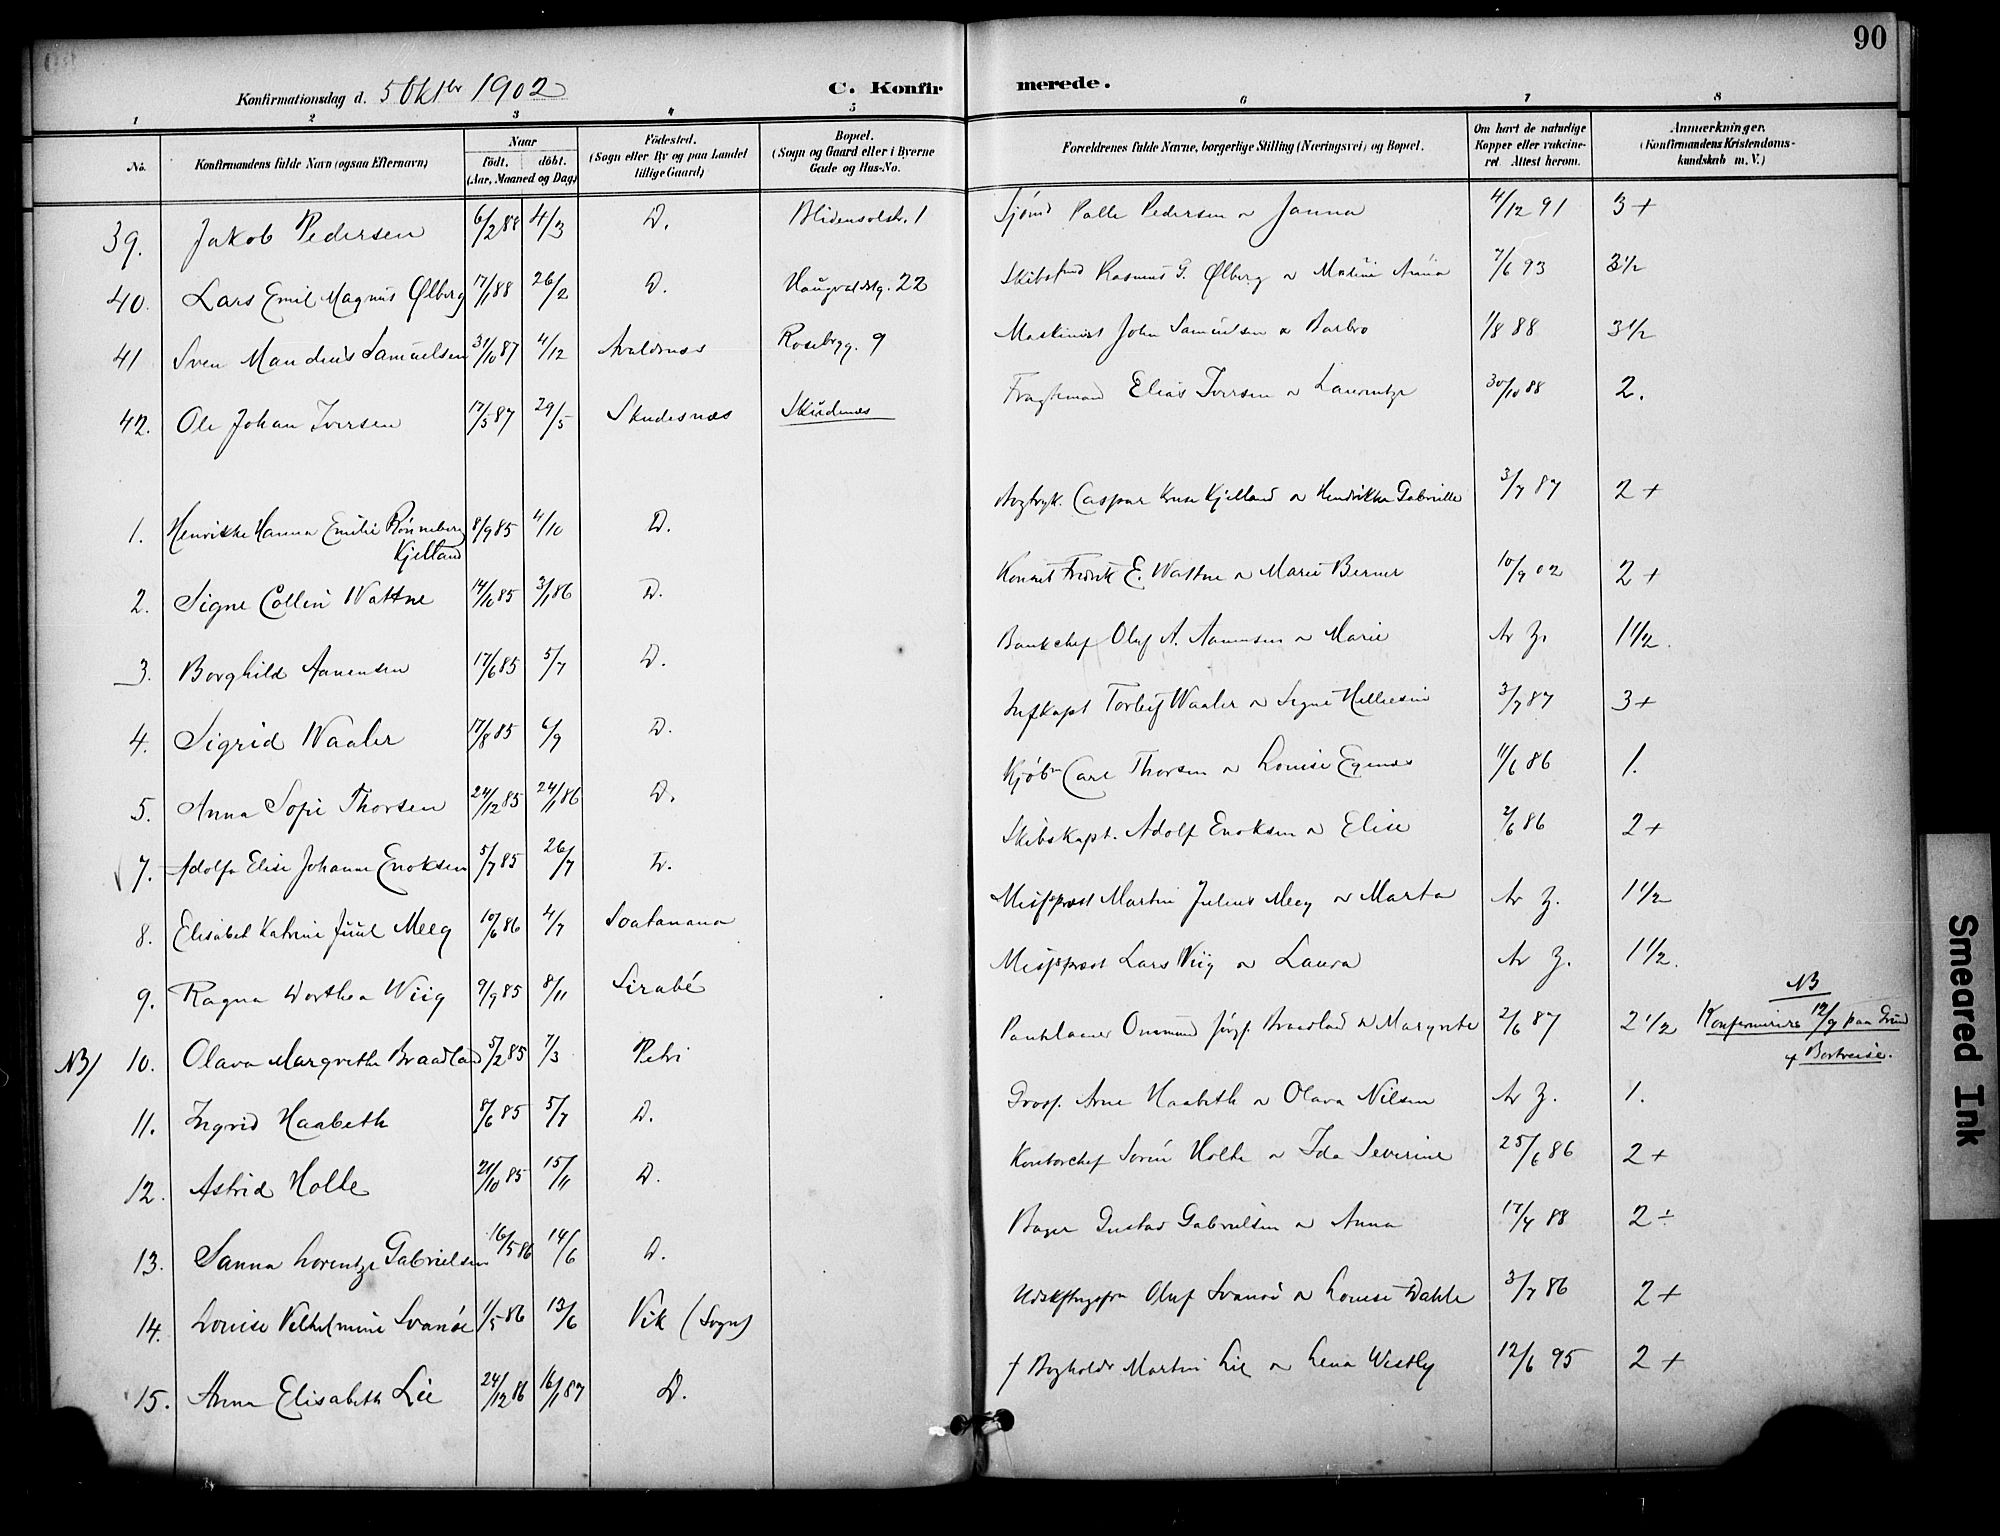 90
Konfirmationsdag d. 5 Oktbr 1902 C. Konfirmerede.
1 2 3 4 5 6 7 8
No. Konfirmandens fulde Navn (ogsaa Efternavn) Naar födt. döbt. (Aar, Maaned og Dag) Födested. (Sogn eller By og paa Landet tillige Gaard) Bopæl. (Sogn og Gaard eller i Byerne Gade og Hus-No. Forældrenes fulde Navne, borgerlige Stilling (Næringsvei) og Bopæl. Om havt de naturlige Kopper eller vakcineret. Attest herom. Anmærkninger. (Konfirmandens Kristendomskundskab m. V.)
39. Jakob Pedersen 6/2 88 4/3 D. Blidensolstr. 1 Sjømd Palle Pedersen o Janna 4/12 91 3+
40. Lars Emil Magnus Ølberg 17/1 88 26/2 D. Haugvaldstg. 22 Rasmus G. Ølberg o Malin Anna 7/6 93 3 1/2
41 Sven Mandius Samuelsen 31/10 87 4/12 Avaldsnes Rosebryg. 9 Maskinist John Samuelsen o Barbro 1/8 88 3 1/2
42. Ole Johan Iversen 29/5 Skudesnæs Skudenæs Fragtmand Elias Iversen o Laurentze 30/10 88 2.
1. Henrikke Hanna Emilie Rønneberg Kjelland 8/9 85 4/10 D. Bogtryk. Caspar Kruse Kjelland o Hendrikka Gabrielle 3/7 87 2+
2. Signe Collin Wattne 14/10 85 3/1 86 D. Fredrik E. Wattne o Marie Berner 10/9 02 2+
3. Borghild Aanensen 17/6 85 5/7 D. Bankchef Oluf A. Aanensen o Marie Ar Z. 1 1/2.
4. Sigrid Waaler 17/8 85 6/9 D. Infkapt Torleif Waaler o Signe Helliesen 3/7 87 3+
5. Anna Sofie Thorsen 24/12 85 24/1 86 D. Kjøbm Carl Thorsen o Louise Egenæs 11/6 86 1.
7. Adolfa Elise Johanne Enoksen 5/7 85 26/7 D. Skibskapt. Adolf Enoksen o Elise 2/6 86 2+
8. Elisabet Katrine Juul Meeg 10/6 86 4/7 Soatanana Misspræst Martin Julius Meeg o Marta Ar Z. 1 1/2
9. Ragna Dorthea Wiig 9/9 85 8/11 Sirabé Misspræst Lars Wiig o Laura Ar Z. 1 1/2.
NB
NB/ 10. Olava Margrethe Braadland 5/2 85 7/3 Petri Braadland o Margrete 2/6 87 2 1/2 Konfirmeres 12/9 paa Grund
af Bortreise.
11. Ingrid Haabeth 8/6 85 5/7 D. Gross. Arne Haabeth o Olava Nilsen Ar Z. 1.
12. Astrid Holte 21/10 85 15/11 D. Kontorchef Sören Holte o Ida Severine 25/6 86 2+
13. Sanna Lorentze Gabrielsen 16/5 86 14/6 D. Bager Gustav Gabrielsen o Anna 17/4 88 2÷
14. Louise Vilhelmine Svanøe 1/5 86 13/6 Vik (Sogn) Oluf Svanøe o Louise Dahle 3/7 86 2+
15. Anna Elisabeth Lie 24/12 86 16/1 87 D. f Bogholdr Martin Lie o Lena Westly 12/6 95 2+
Smeared Ink